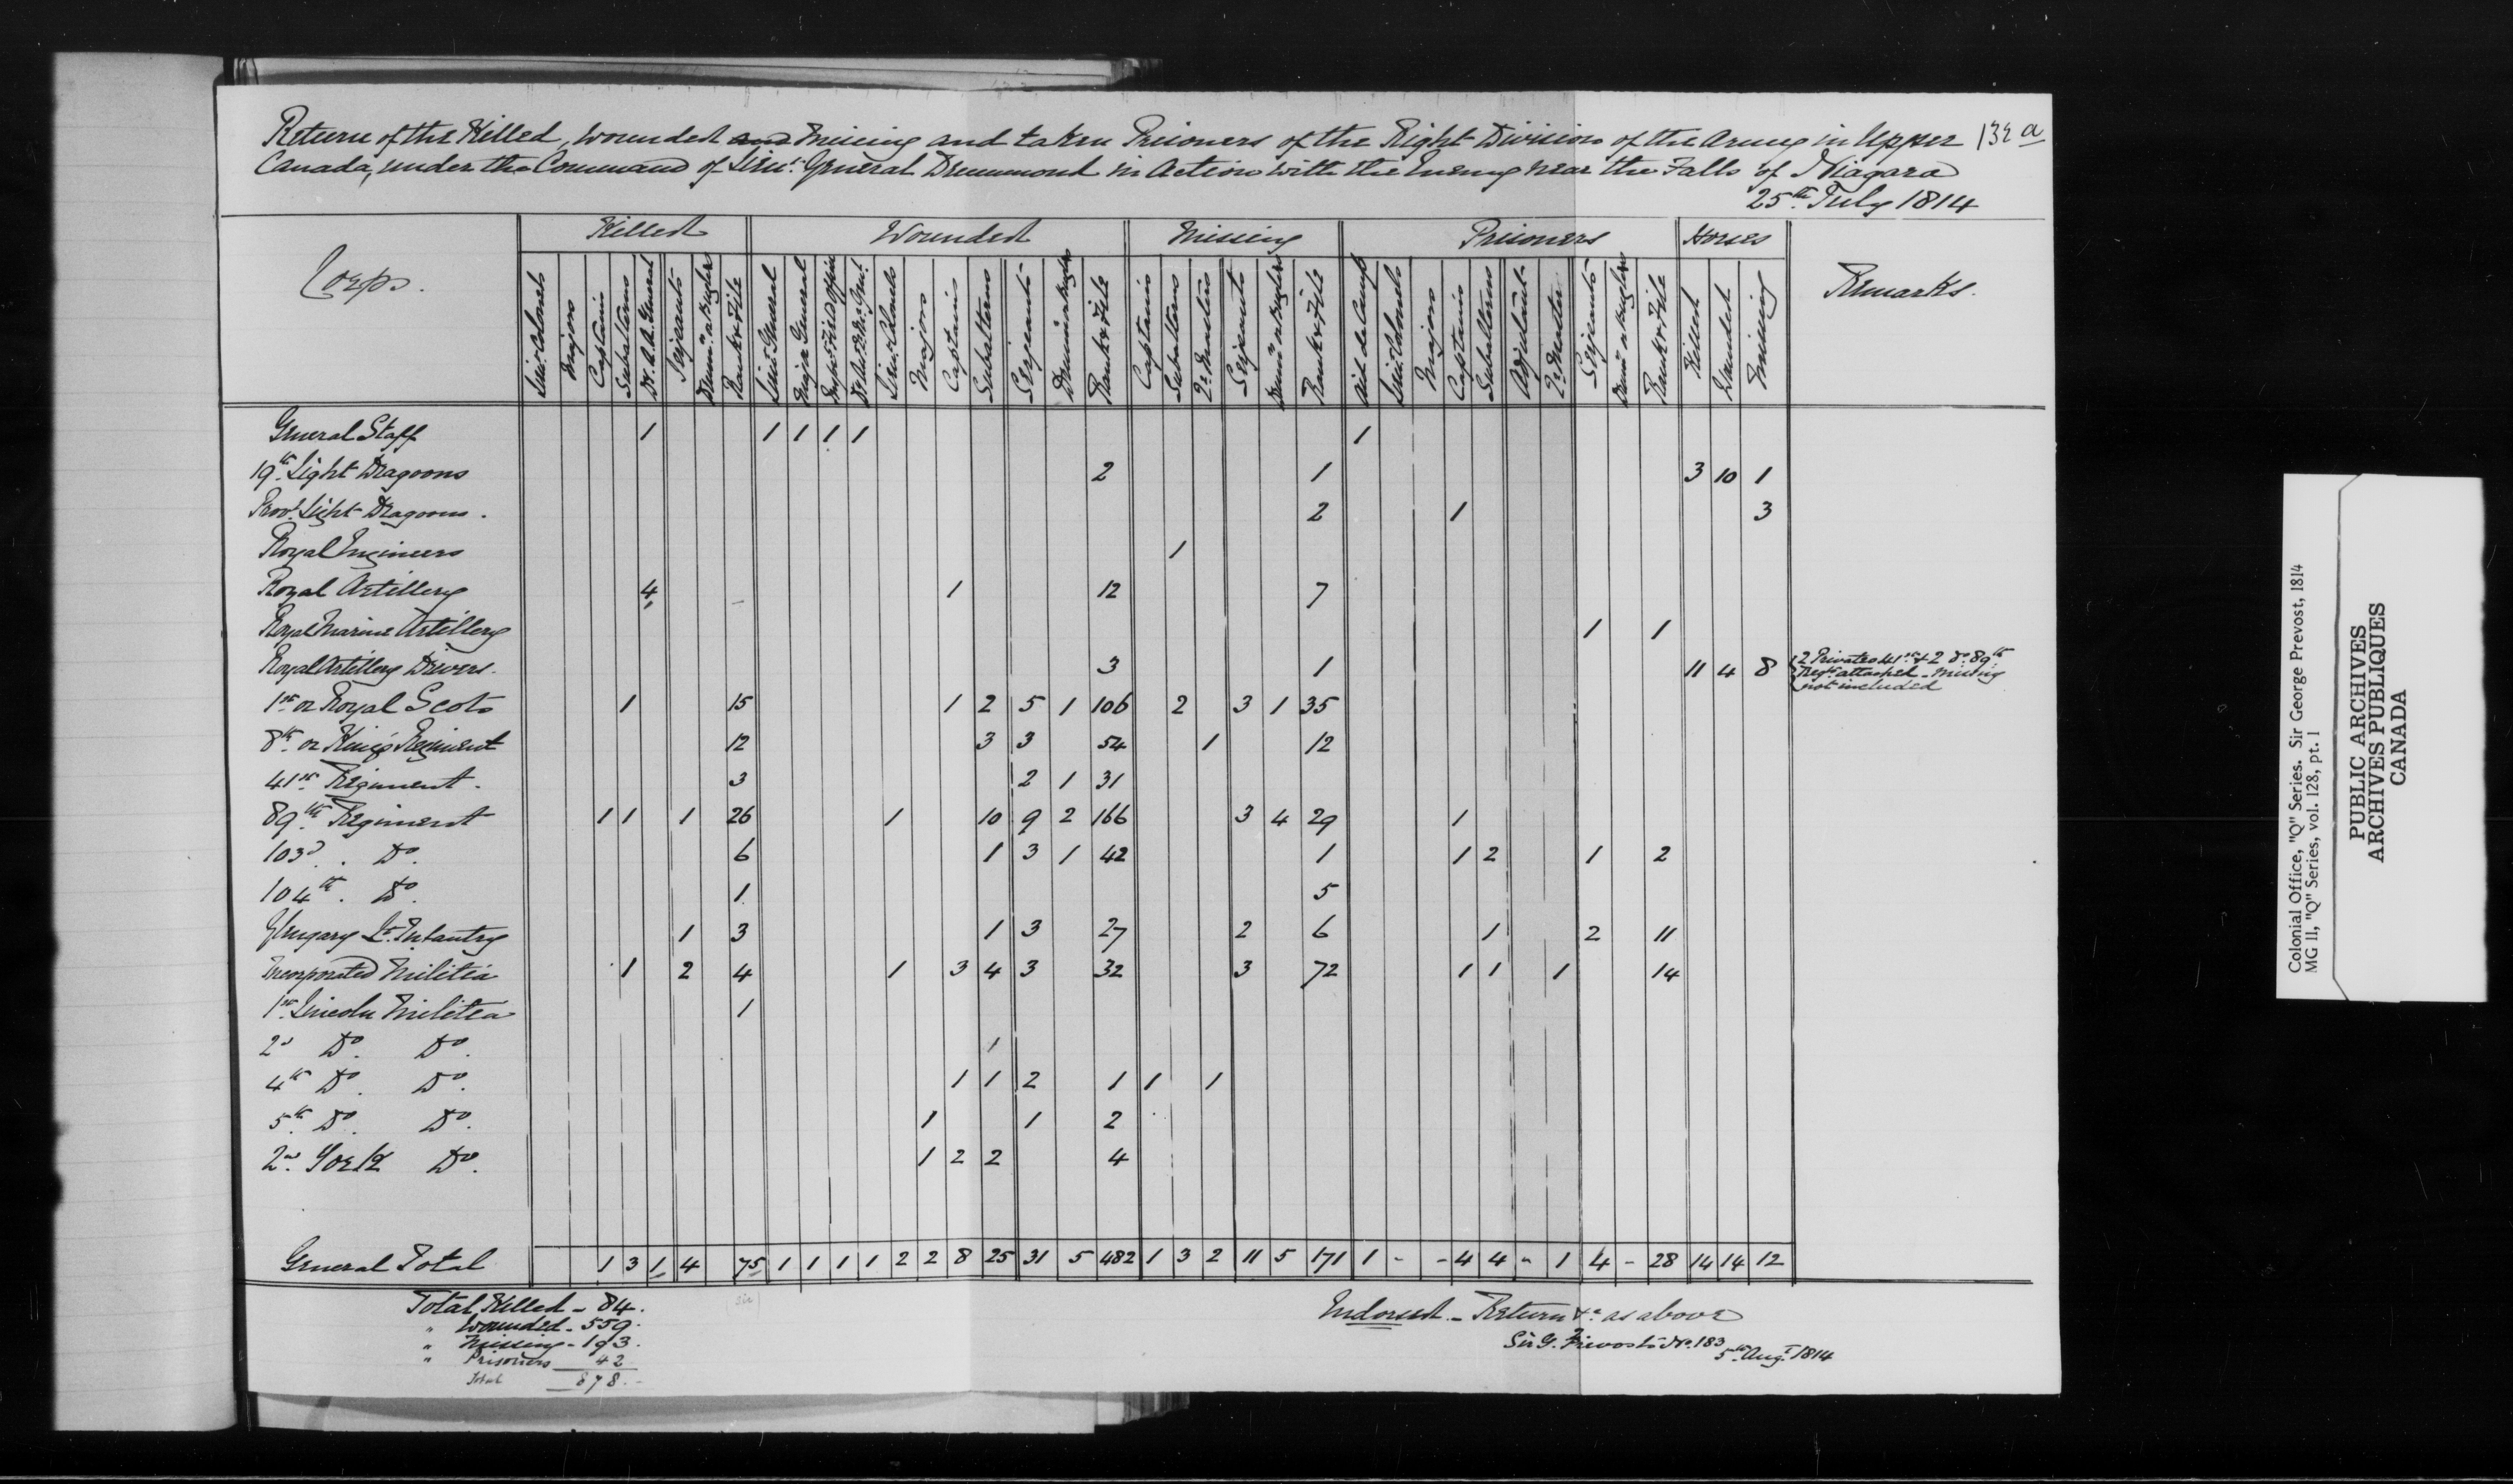 Return of the Killed, Wounded and Missing and taken Prisoners of the Right Division of the Army in Upper 132 a
Canada, under the Command of Lieut. General Drummond in Action with the Enemy near the Falls of Niagara
25th July 1814
Corps. Killed Wounded Missing Prisoners Horses Remarks.
Lieut. Colonels Majors Captains Subalterns Dt. A. A. General Serjeants Drumrs. or Buglers Rank & File Lieut. General Major General Lieut. Colonels Majors Captains Subalterns Sergeants Drummrs or Bugler Rank & File Captains Subalterns Qr. Masters Serjeants Drumrs or Buglers Rank & File Aid de Camp Lieut. Colonels Majors Captains Subalterns Adjutant Qr. Master Serjeants Drumrs or Buglers Rank & File Killed Wounded Missing
General Staff 1 1 1 1 1 1
19th Light Dragoons 2 1 3 10 1
Provl Light Dragoons. 2 1 3
Royal Engineers 1
Royal Artillery 4 1 12 7
Royal Marine Artillery 1 1
Royal Artillery Drivers. 3 1 11 4 8 2 Privates 41st & 2 do 89th
Regt attached - Missing
not included
1st or Royal Scots 1 15 1 2 5 1 106 2 3 1 35
8th or King's Regiment 12 3 3 54 1 12
41st Regiment. 3 2 1 31
89th Regiment 1 1 1 26 1 10 9 2 166 3 4 29 1
103d. Do. 6 1 3 1 42 1 1 2 1 2
104th. Do. 1 5
Glengary Lt. Infantry 1 3 1 3 27 2 6 1 2 11
Incorporated Militia 1 2 4 1 3 4 3 32 3 72 1 1 1 14
1st Lincoln Militia 1
2d Do. Do. 1
4th Do. Do. 1 1 2 1 1 1
5th Do. Do. 1 1 2
2nd York Do. 1 2 2 4
General Total 1 3 1 4 75 1 1 1 1 2 2 8 25 31 5 482 1 3 2 11 5 171 1 - - 4 4 - 1 4 - 28 14 14 12
(sic)
Total Killed - 84.
" Wounded - 559.
" Missing - 193.
" Prisoners 42
Total 878.-
Endorsed. - Return &c. as above
Sir G. Prevost's No. 183
5th Augt 1814
Colonial Office, "Q" Series. Sir George Prevost, 1814
MG 11, "Q" Series, vol. 128, pt. 1
PUBLIC ARCHIVES
ARCHIVES PUBLIQUES
CANADA